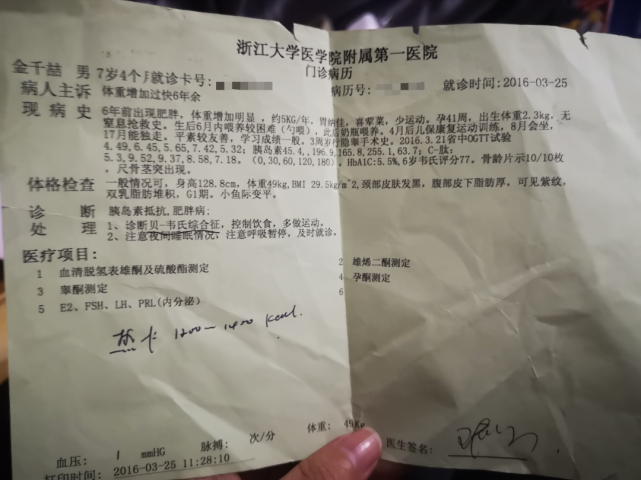 浙江大学医学院附属第一医院
门诊病历
金千喆 男 7岁4个月就诊卡号:
病历号:
就诊时间:2016-03-25
病人主诉 体重增加过快6年余
现 病 史 6年前出现肥胖,体重增加明显,约5KG/年,胃纳佳,喜荤菜,少运动,孕41周,出生体重2.3kg,无
窒息抢救史。生后6月内喂养较困难(勺喂),此后奶瓶喂养。4月后儿保康复运动训练,8月会坐,
17月能独走。平素较友善,学习成绩一般。3周岁行隐睾手术史。2016.3.21省中OGTT试验
4.4,9.49,6.45,5.65,7.42,5.32;胰岛素45.4,196.9,165.8,255.1,63.7;C-肽:
5.3,9.52,9.37,8.58,7.18。(0,30,60,120,180),HbA1C:5.5%,6岁韦氏评分77。骨龄片示10/10枚
,尺骨茎突出现。
体格检查 一般情况可,身高128.8cm,体重49kg,BMI 29.5kg/m^2,颈部皮肤发黑,腹部皮下脂肪厚,可见紫纹,
双乳脂肪堆积,G1期。小鱼际变平。
诊 断 胰岛素抵抗,肥胖病;
处 理 1、诊断贝-韦氏综合征,控制饮食,多做运动。
2、注意夜间睡眠情况,注意呼吸暂停,及时就诊。
医疗项目:
1 血清脱氢表雄酮及硫酸酯测定
2 雄烯二酮测定
3 睾酮测定
4 孕酮测定
5 E2、FSH、LH、PRL(内分泌)
6
热卡 1200-1400 kcal.
血压: / mmHG 脉搏: 次/分 体重: 49Kg
医生签名:
打印时间: 2016-03-25 11:28:10